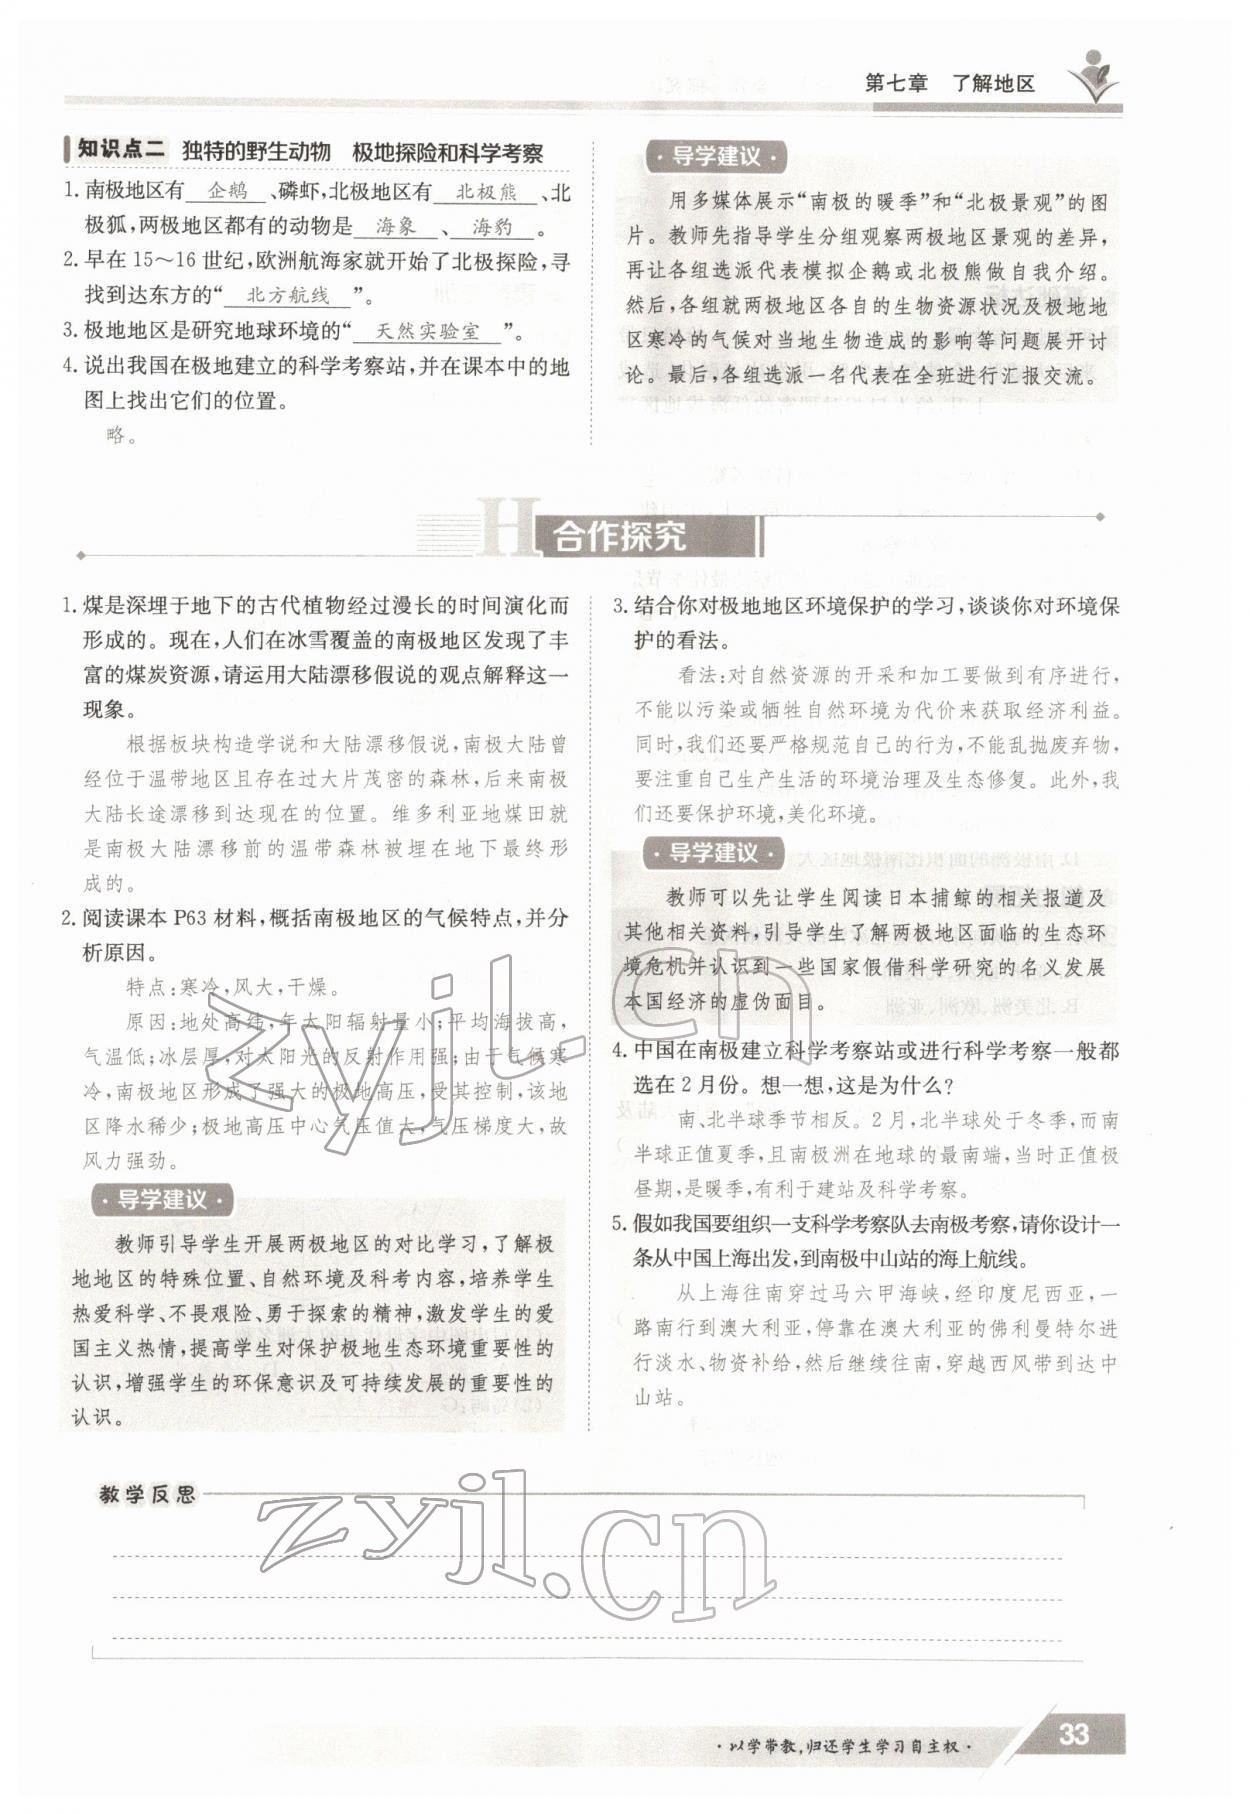 第七章 了解地区
知识点二 独特的野生动物 极地探险和科学考察
1. 南极地区有 企鹅 、磷虾,北极地区有 北极熊 、北
极狐,两极地区都有的动物是 海象 、 海豹 。
2. 早在 15～16 世纪,欧洲航海家就开始了北极探险,寻
找到达东方的“ 北方航线 ”。
3. 极地地区是研究地球环境的“ 天然实验室 ”。
4. 说出我国在极地建立的科学考察站,并在课本中的地
图上找出它们的位置。
略。
·导学建议·
用多媒体展示“南极的暖季”和“北极景观”的图
片。教师先指导学生分组观察两极地区景观的差异,
再让各组选派代表模拟企鹅或北极熊做自我介绍。
然后,各组就两极地区各自的生物资源状况及极地地
区寒冷的气候对当地生物造成的影响等问题展开讨
论。最后,各组选派一名代表在全班进行汇报交流。
H 合作探究
1. 煤是深埋于地下的古代植物经过漫长的时间演化而
形成的。现在,人们在冰雪覆盖的南极地区发现了丰
富的煤炭资源,请运用大陆漂移假说的观点解释这一
现象。
根据板块构造学说和大陆漂移假说,南极大陆曾
经位于温带地区且存在过大片茂密的森林,后来南极
大陆长途漂移到达现在的位置。维多利亚地煤田就
是南极大陆漂移前的温带森林被埋在地下最终形
成的。
2. 阅读课本 P63 材料,概括南极地区的气候特点,并分
析原因。
特点:寒冷,风大,干燥。
原因:地处高纬,年太阳辐射量小;平均海拔高,
气温低;冰层厚,对太阳光的反射作用强;由于气候寒
冷,南极地区形成了强大的极地高压,受其控制,该地
区降水稀少;极地高压中心气压值大,气压梯度大,故
风力强劲。
·导学建议·
教师引导学生开展两极地区的对比学习,了解极
地地区的特殊位置、自然环境及科考内容,培养学生
热爱科学、不畏艰险、勇于探索的精神,激发学生的爱
国主义热情,提高学生对保护极地生态环境重要性的
认识,增强学生的环保意识及可持续发展的重要性的
认识。
3. 结合你对极地地区环境保护的学习,谈谈你对环境保
护的看法。
看法:对自然资源的开采和加工要做到有序进行,
不能以污染或牺牲自然环境为代价来获取经济利益。
同时,我们还要严格规范自己的行为,不能乱抛废弃物,
要注重自己生产生活的环境治理及生态修复。此外,我
们还要保护环境,美化环境。
·导学建议·
教师可以先让学生阅读日本捕鲸的相关报道及
其他相关资料,引导学生了解两极地区面临的生态环
境危机并认识到一些国家假借科学研究的名义发展
本国经济的虚伪面目。
4. 中国在南极建立科学考察站或进行科学考察一般都
选在 2 月份。想一想,这是为什么?
南、北半球季节相反。2 月,北半球处于冬季,而南
半球正值夏季,且南极洲在地球的最南端,当时正值极
昼期,是暖季,有利于建站及科学考察。
5. 假如我国要组织一支科学考察队去南极考察,请你设计一
条从中国上海出发,到南极中山站的海上航线。
从上海往南穿过马六甲海峡,经印度尼西亚,一
路南行到澳大利亚,停靠在澳大利亚的佛利曼特尔进
行淡水、物资补给,然后继续往南,穿越西风带到达中
山站。
教学反思
·以学带教,归还学生学习自主权·
33
zyjl.cn
zyjl.cn